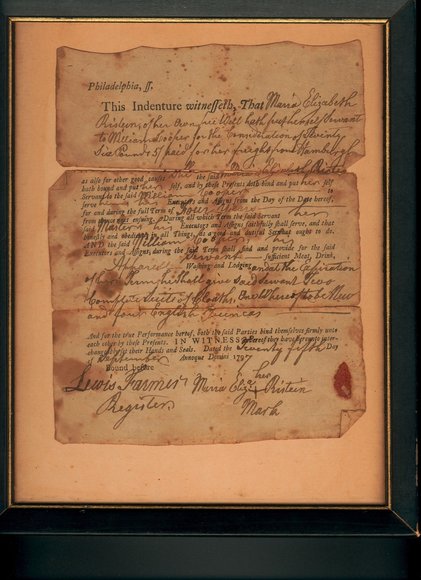 Philadelphia, ſſ.
This Indenture witneſſeth, That Maria Elizabeth
of her Own free Will hath put herself Servant
to William Cooper for the Consideration of
Six Pounds paid for her freight from Hamburgh
as alſo for other good cauſes the said Maria Elizabeth
hath bound and put her ſelf, and by theſe Preſents doth bind and put her ſelf
Servant to the ſaid William Cooper to
ſerve him his Executors and Aſſigns from the Day of the Date hereof,
for and during the full Term of Years
from thence next enſuing. During all which Term the ſaid Servant her
ſaid Master his Executors and Aſſigns faithfully ſhall ſerve, and that
honeſtly and obediently in all Things, as a good and dutiful Servant ought to do.
AND the ſaid William Cooper his
Executors and Aſſigns, during the ſaid Term ſhall find and provide for the ſaid
Servant ſufficient Meat, Drink,
Apparel Waſhing and Lodging and at the Expiration
of her Term shall give said Servant Two
Complete Suits of Cloaths, One Whereof to be New
and four English Guineas
And for the true Performance hereof, both the ſaid Parties bind themſelves firmly unto
each other by theſe Preſents. IN WITNESS whereof they have hereunto inter-
changeably ſet their Hands and Seals. Dated the fifth Day
September Annoque Domini 1797
Bound before
Lewis Farmer Maria Eliza her Ristein
Register Mark